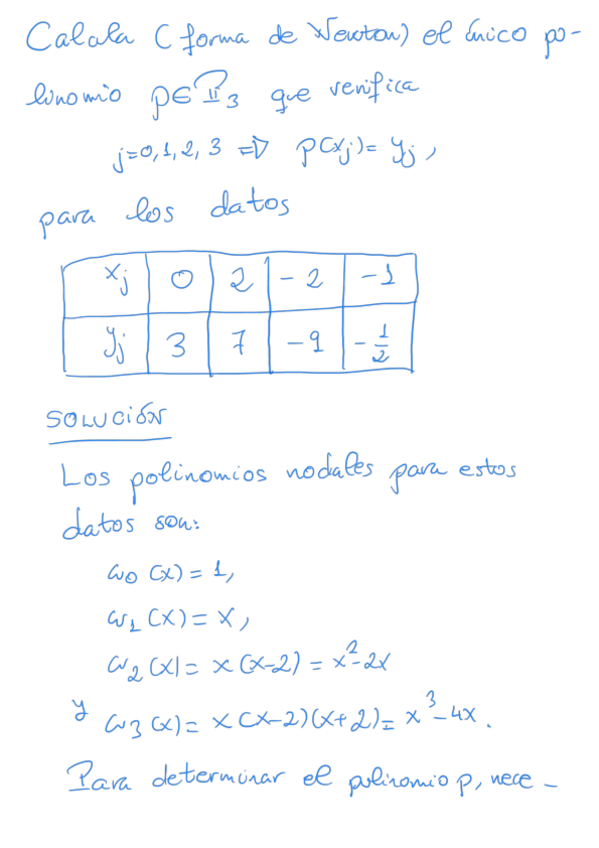 Calcula (forma de Newton) el único po-
linomio p∈ℙ₃ que verifica
j=0,1,2,3 ⇒ p(xj)= yj,
para los datos
xj 0 2 -2 -1
yj 3 7 -9 -1/2
SOLUCIÓN
Los polinomios nodales para estos
datos son:
ω₀(x)=1,
ω₁(x)=x,
ω₂(x)= x(x-2)= x²-2x
y ω₃(x)= x(x-2)(x+2)= x³-4x.
Para determinar el polinomio p, nece-